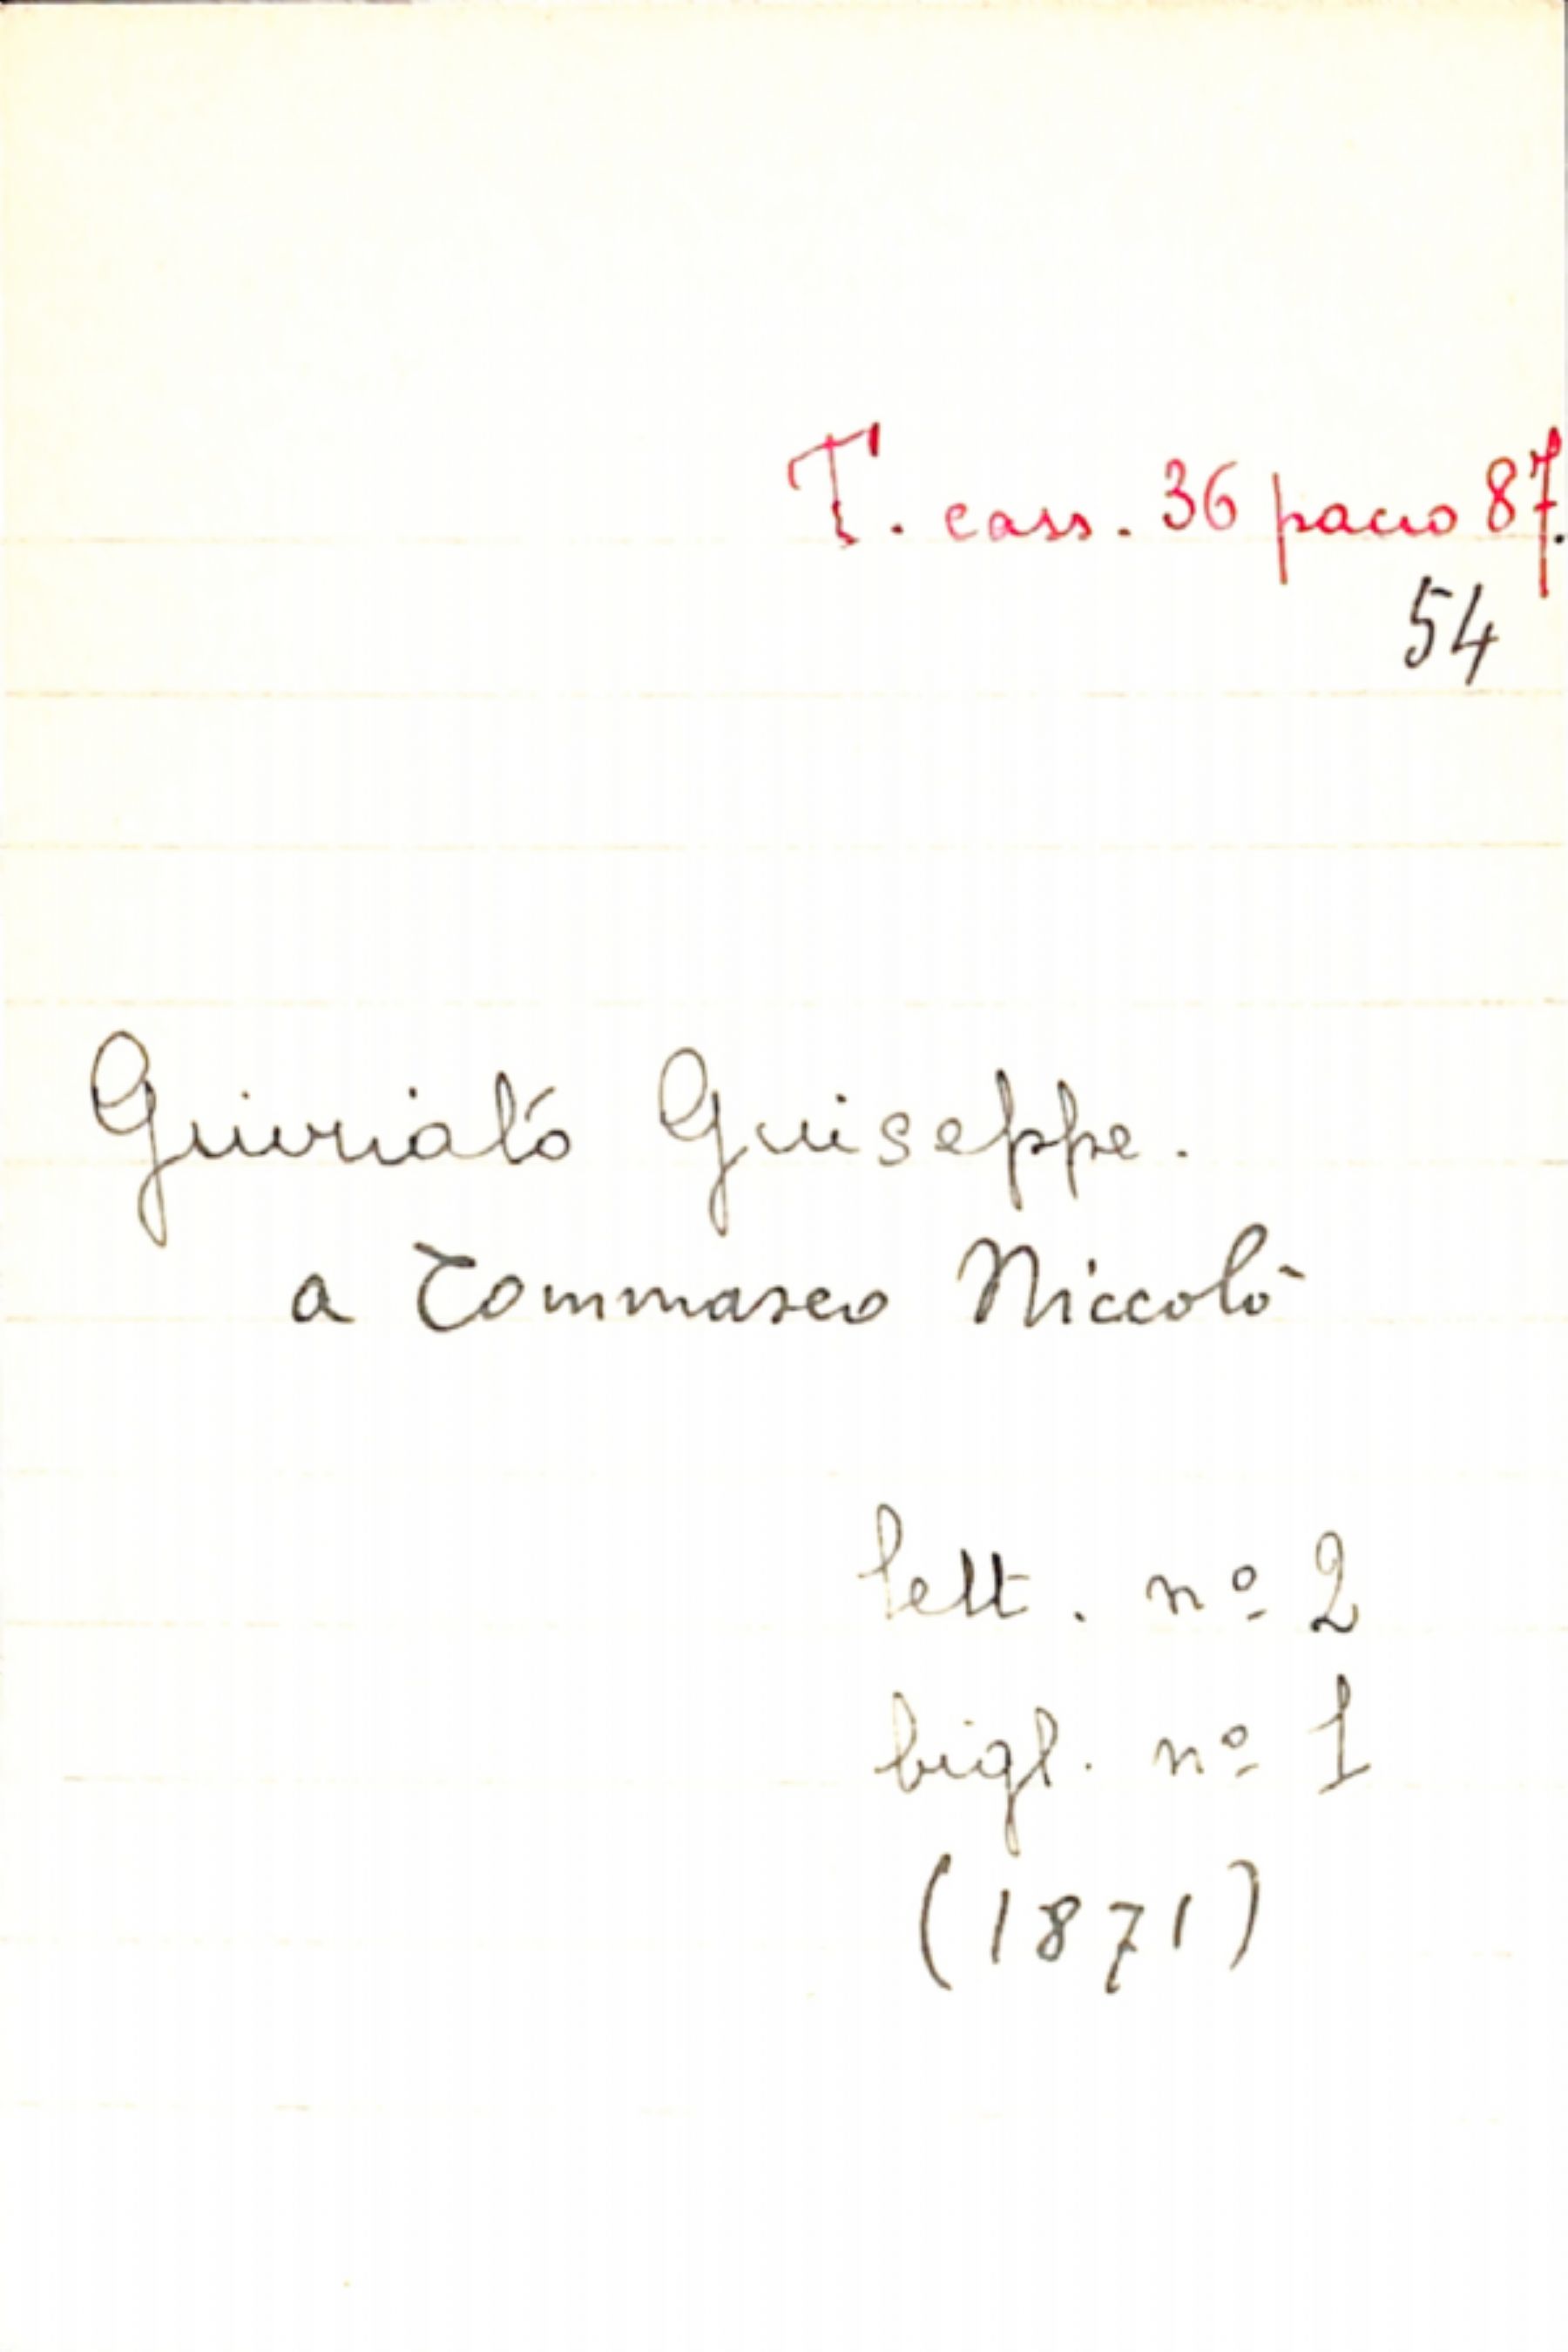 T. cass. 36 pacco 87.
54
Giuriató Giuseppe.
a Tommaseo Niccolò
lett. nº 2
bigl. nº 1
(1871)